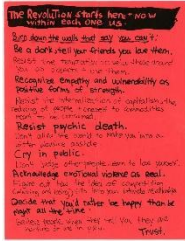 The Revolution starts here + now
within each one of us.
Burn down the walls that say you can't.
Be a dork, tell your friends you love them.
Resist the temptation to
Recognize empathy and vulnerability as
positive forms of strength.
Resist the internalization of capitalism, the
reducing of people + oneself to commodities
meant to be consumed.
Resist psychic death.
Don't allow the world to make you into a
bitter abusive asshole
Cry in public.
Don't judge other people, learn to love yourself.
Acknowledge emotional violence as real.
Figure out how the idea of
Decide that you'd rather be happy than be
right all the time.
Believe people when they tell you they are
hurting or are in pain.
Trust.